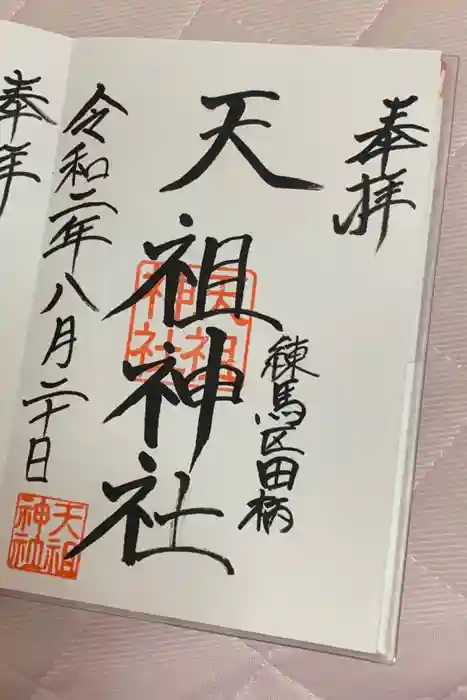 奉拝
天祖神社
天祖神社
練馬区田柄
令和二年八月二十日
天祖神社
奉拝